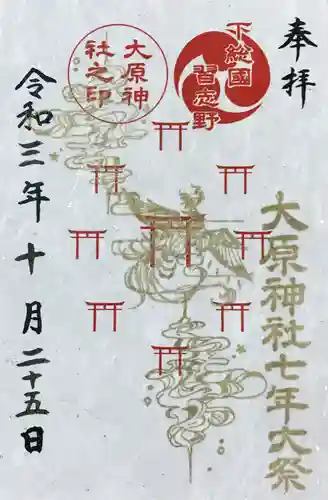 奉拝
下総國
習志野
大原神社七年大祭
大原神
社之印
令和三年十月二十五日